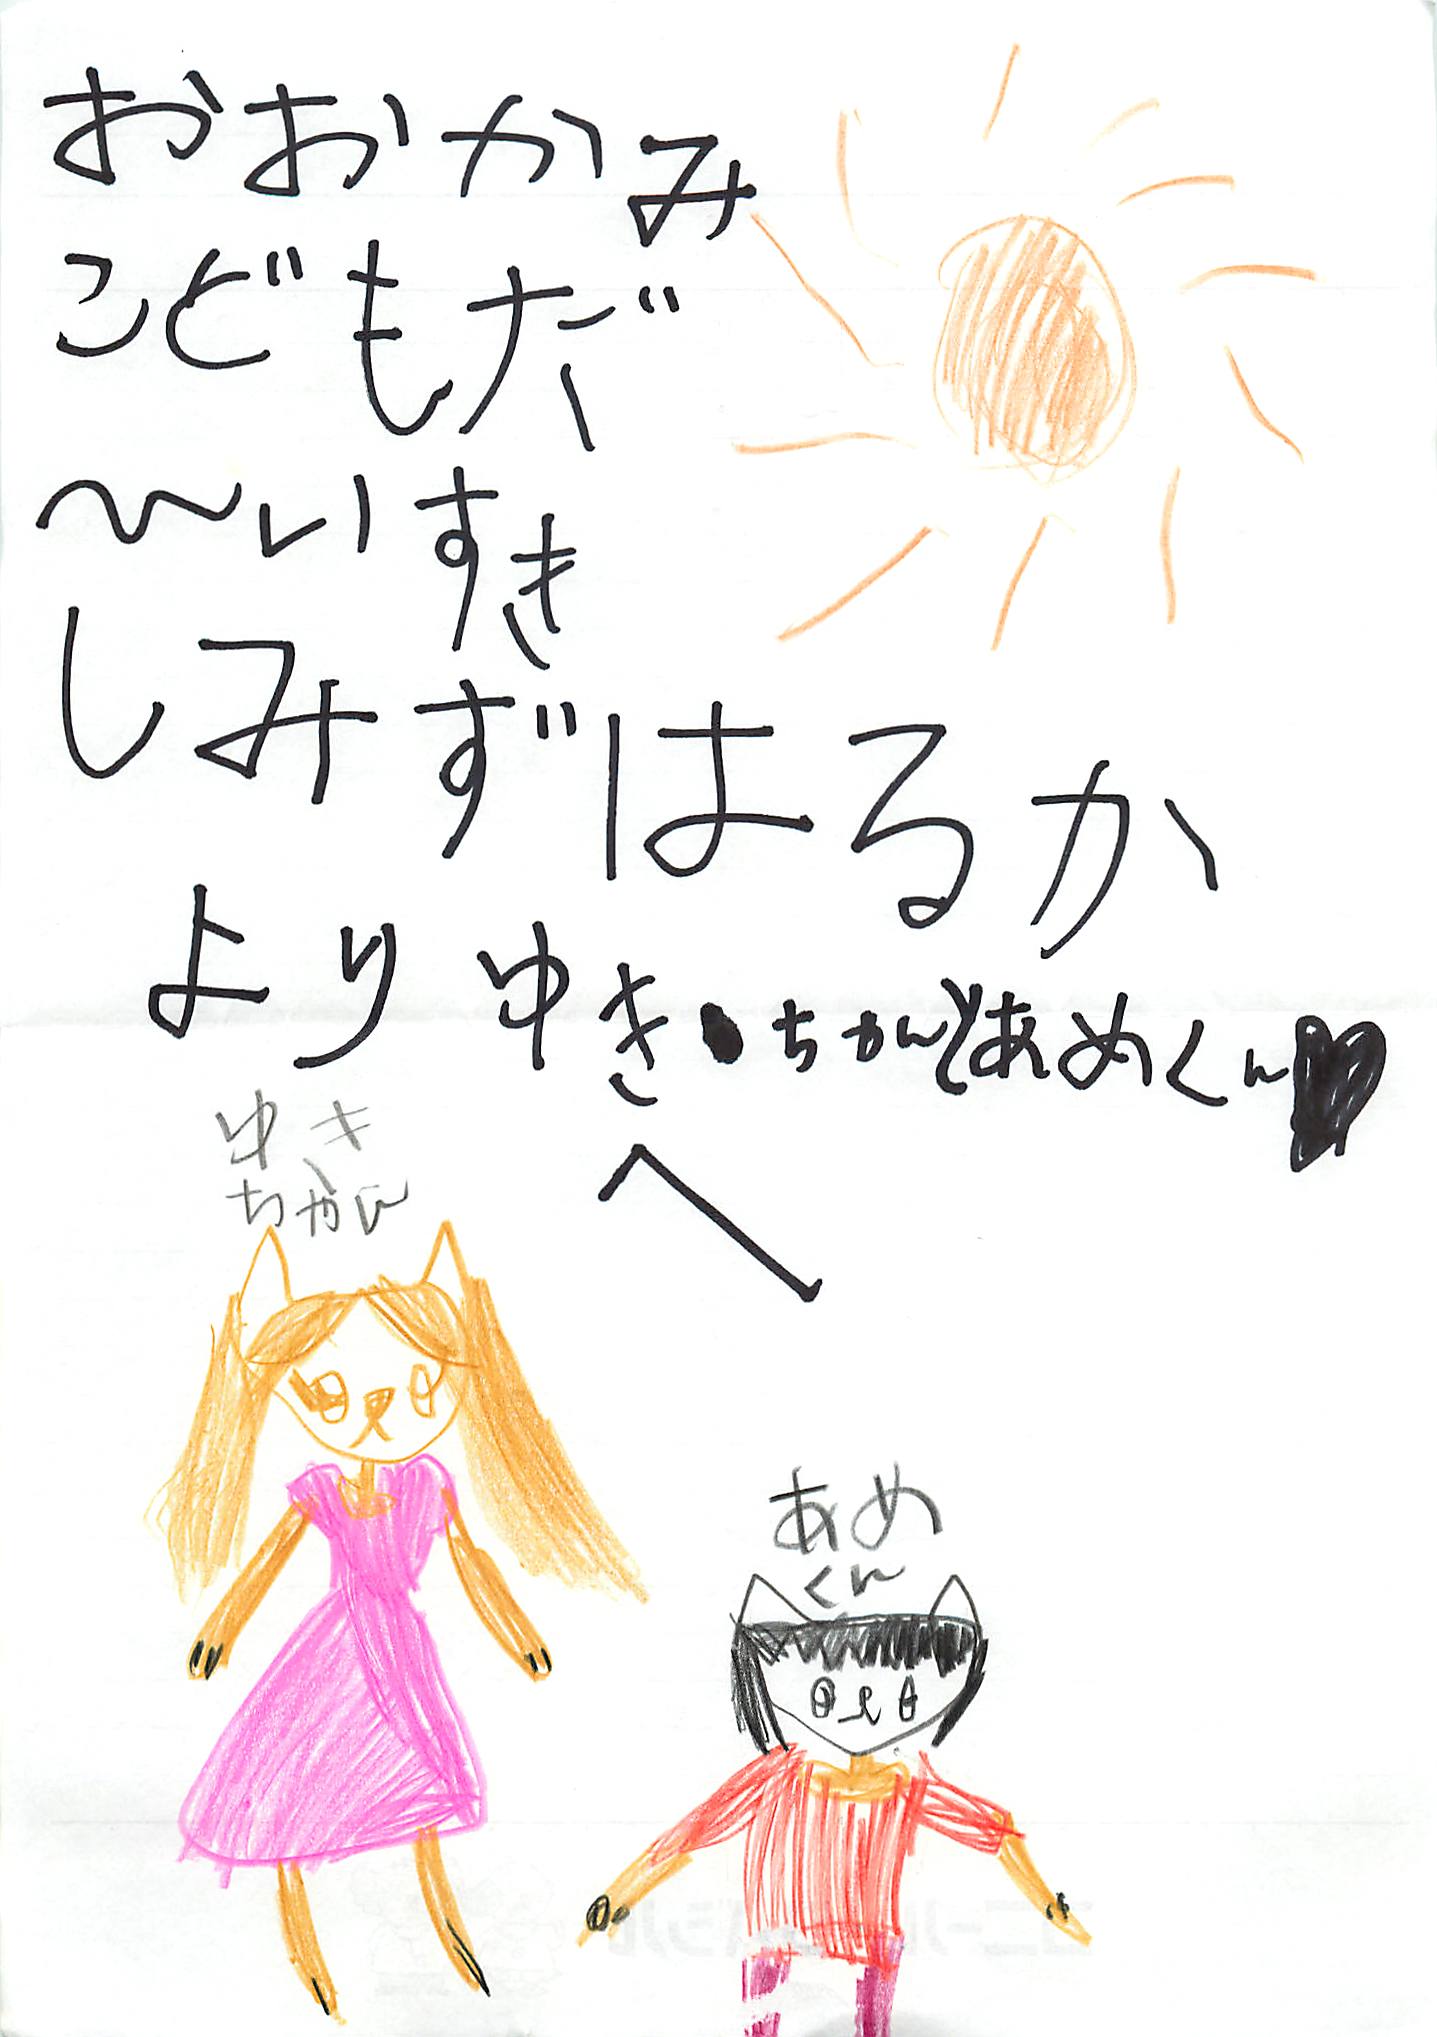 おおかみ
こどもだ
〜いすき
しみずはるか
よりゆきちゃんとあめくん♥
へ
ゆき
ちゃん
あめ
くん